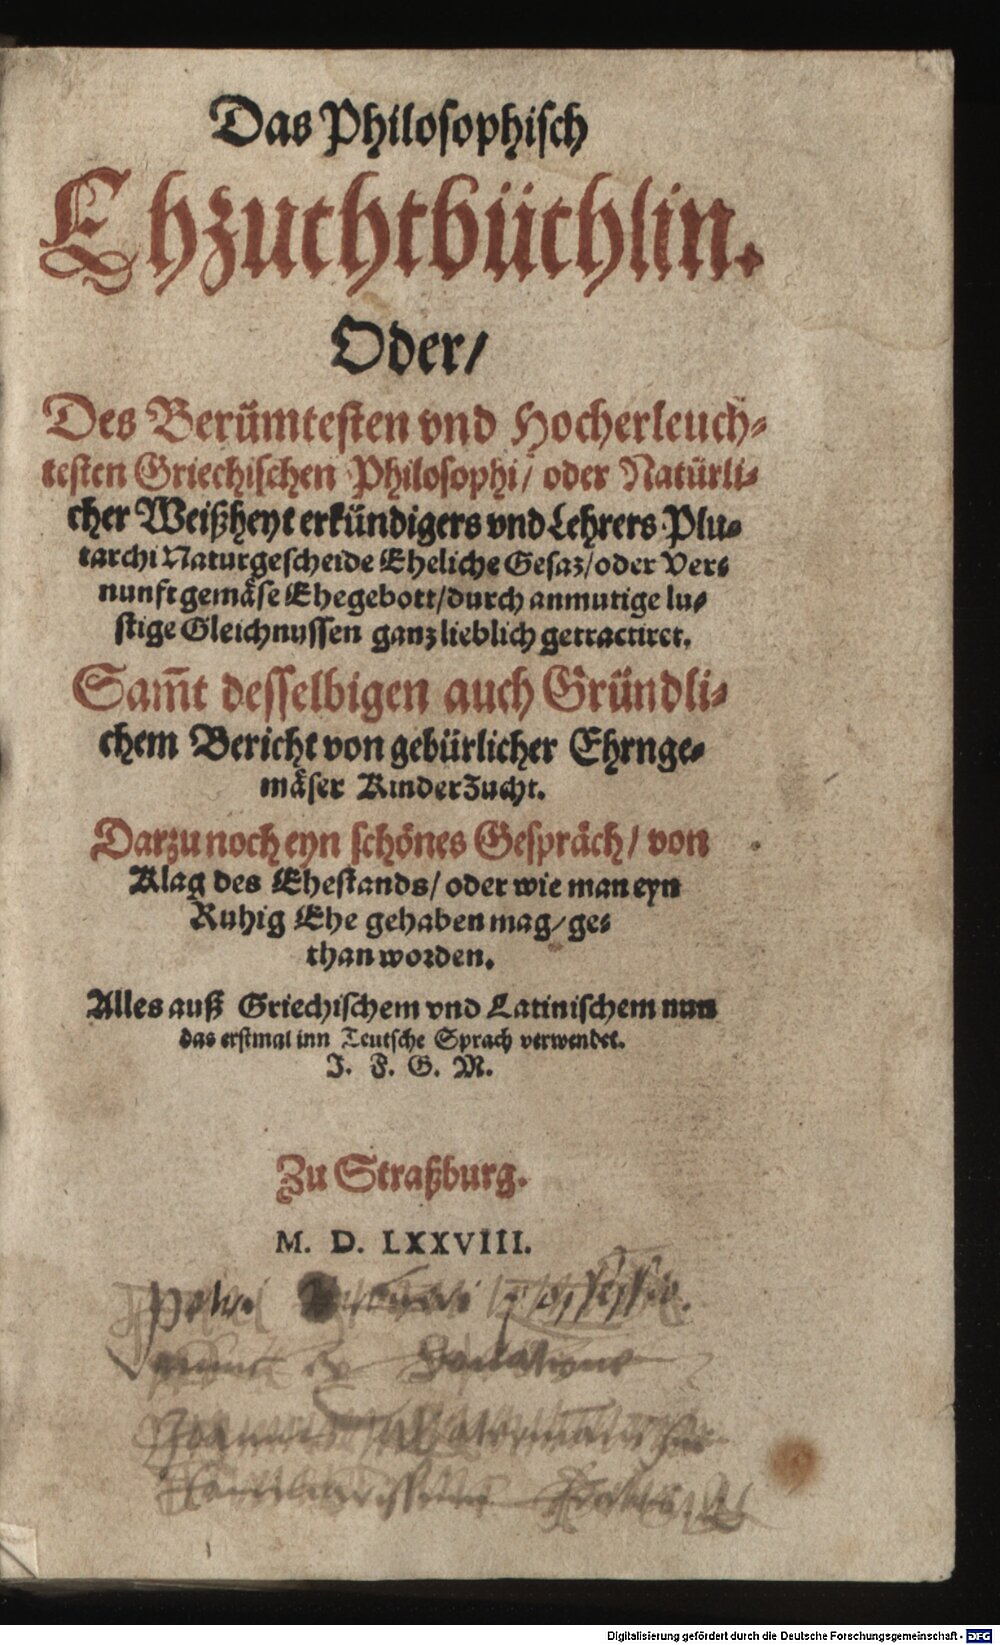 Das Philosophisch
Ehzuchtbüchlin.
Oder/
Des Berümtesten vnd Hocherleuch-
testen Griechischen Philosophi/ oder Natürli-
cher Weißheyt erkündigers vnd Lehrers Plu-
tarchi Naturgescheide Eheliche Gesaz/ oder Ver-
nunft gemäse Ehegebott/ durch anmutige lu-
stige Gleichnussen ganz lieblich getractiret.
Sam̃t desselbigen auch Gründli-
chem Bericht von gebürlicher Ehrnge-
mäser Kinderzucht.
Darzu noch eyn schönes Gespräch/ von
Klag des Ehestands/ oder wie man eyn
Ruhig Ehe gehaben mag/ ge-
than worden.
Alles auß Griechischem vnd Latinischem nun
das erstmal inn Teutsche Sprach verwendet.
J. F. G. M.
Zu Straßburg.
M. D. LXXVIII.
nunc ex Donatione
Digitalisierung gefördert durch die Deutsche Forschungsgemeinschaft - DFG